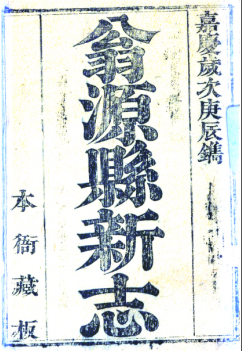 嘉慶歲次庚辰鐫
翁源縣新志
本衙藏板